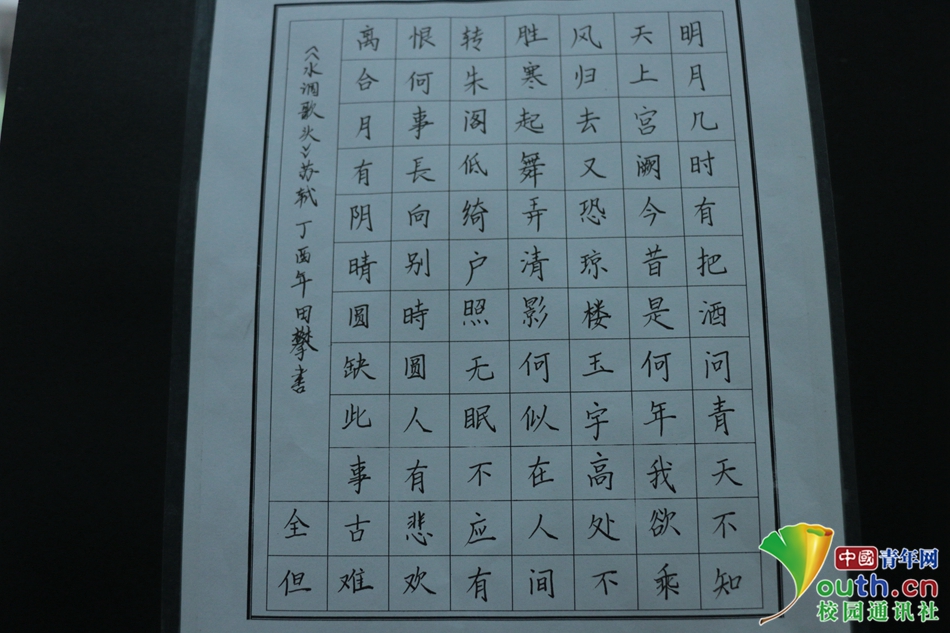 明月几时有把酒问青天不知
天上宫阙今昔是何年我欲乘
风归去又恐琼楼玉宇高处不
胜寒起舞弄清影何似在人间
转朱阁低绮户照无眠不应有
恨何事長向别時圆人有悲欢
离合月有阴晴圆缺此事古难
全但
《水调歌头》苏轼 丁酉年田攀書
中國青年网
youth.cn
校园通讯社